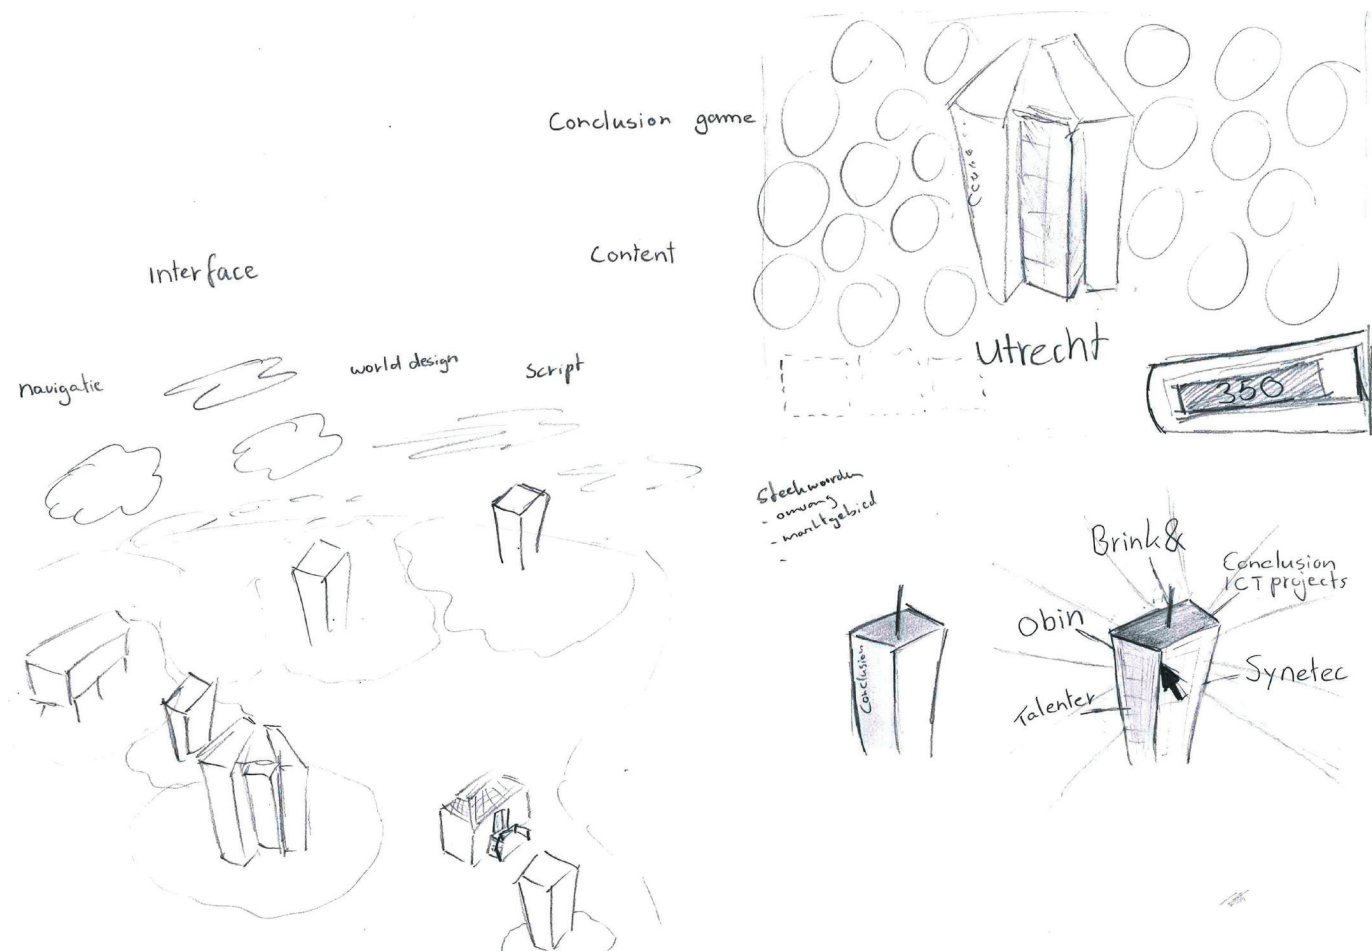 Conclusion game
Interface
Content
navigatie
world design
script
Utrecht
350
Steekwoorden
- omvang
- marktgebied
-
Conclusion
Brink&
Conclusion
ICT projects
Obin
Synetec
Talenter